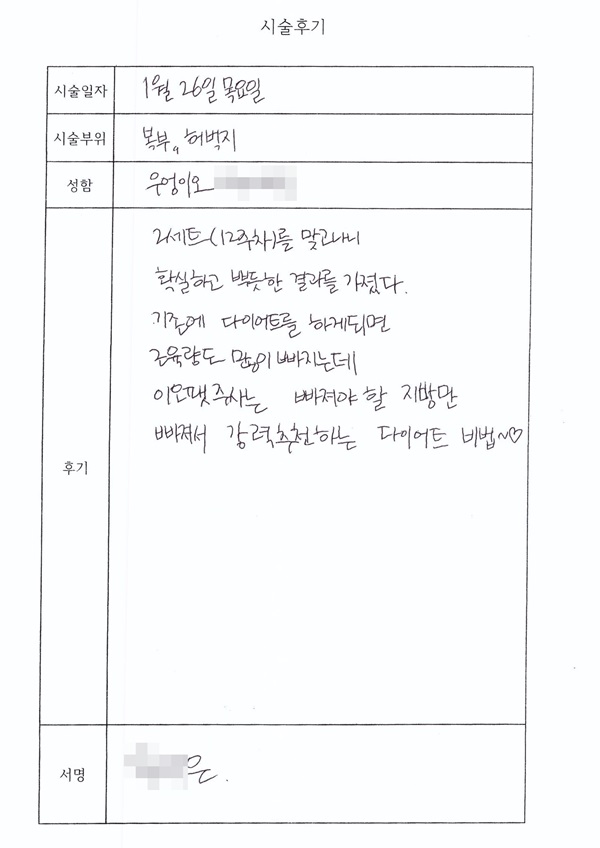 시술후기
시술일자 1월 26일 목요일
시술부위 복부, 허벅지
성함 우엉이오
2세트(12주차)를 맞고나니
확실하고 뿌듯한 결과를 가졌다.
기존에 다이어트를 하게되면
근육량도 많이 빠지는데
이오팻주사는 빠져야 할 지방만
빠져서 강력추천하는 다이어트 비법~♡
후기
서명 은.